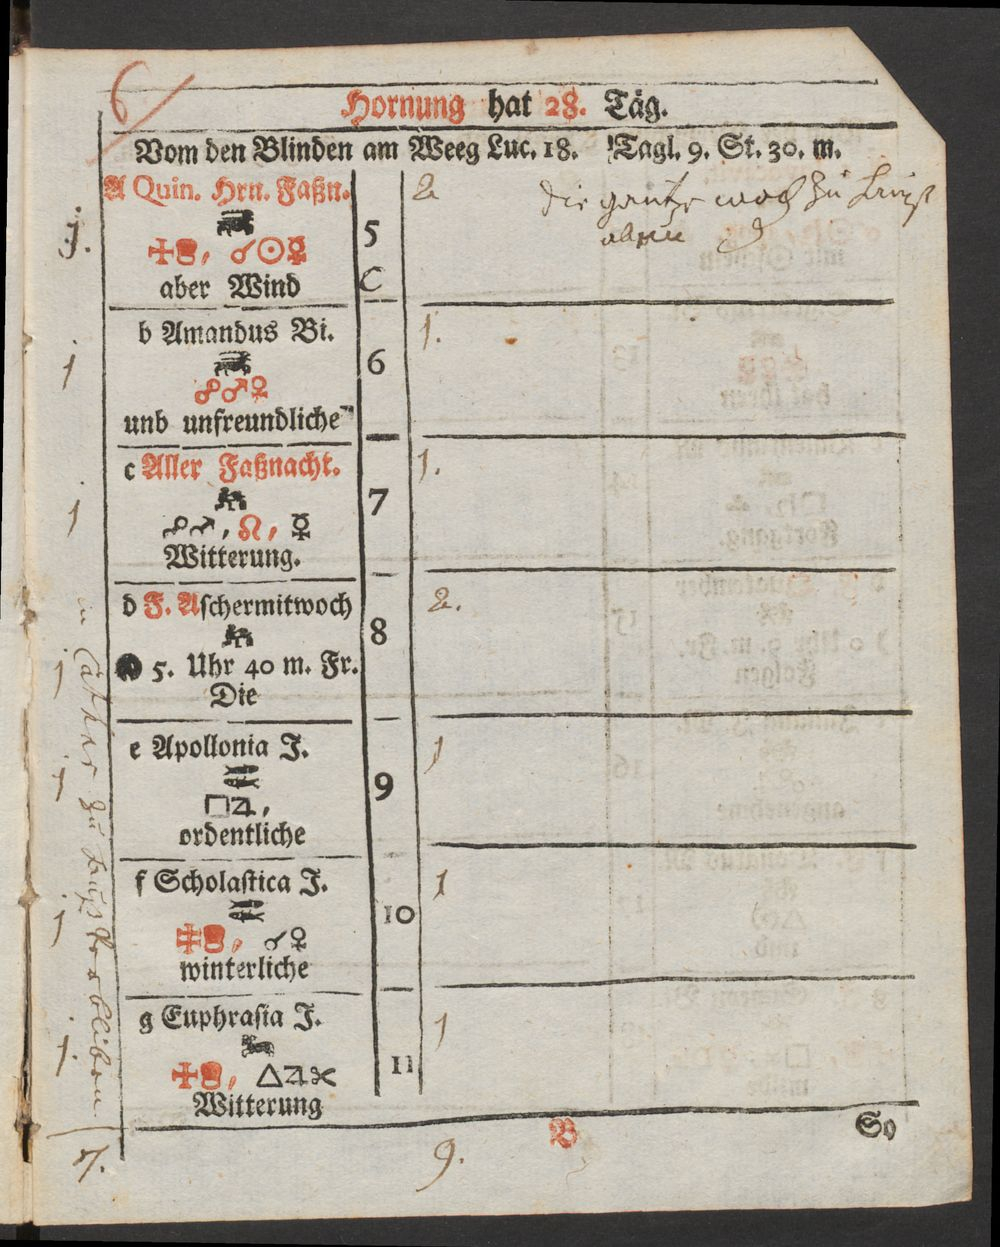 6
Hornung hat 28. Täg.
Vom den Blinden am Weeg Luc. 18. Tagl. 9. St. 30. m.
A Quin. Hrn. Faßn.
5
C
2
die gantze woch zu
☌☉☿
aber Wind
1.
b Amandus Bi.
6
1.
☍♂♀
unb unfreundliche
1
c Aller Faßnacht.
7
1.
☍♂, ♌, ☿
Witterung.
1
d F. Aschermitwoch
8
2.
5. Uhr 40 m. Fr.
Die
1
e Apollonia J.
9
1
□♃,
ordentliche
1
f Scholastica J.
10
1
☌♀
winterliche
1
g Euphrasia J.
11
1
△♃
Witterung
1.
zu
7.
9.
B
So